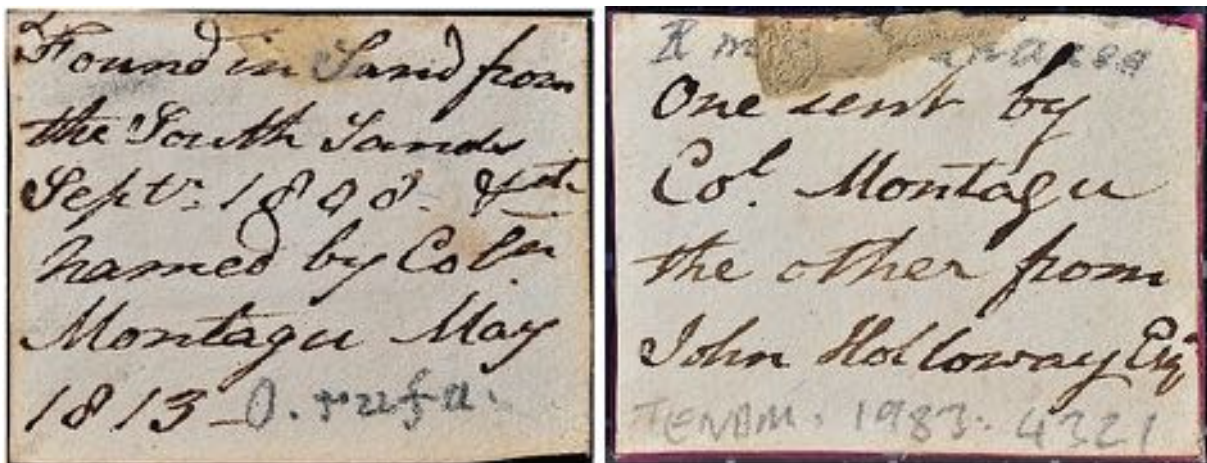 Found in Sand from
the South Sands
Septr: 1808-
named by Coln
Montagu May
1813 -
One sent by
Col. Montagu
the other from
John Holloway Esq
TENBM. 1983. 4321